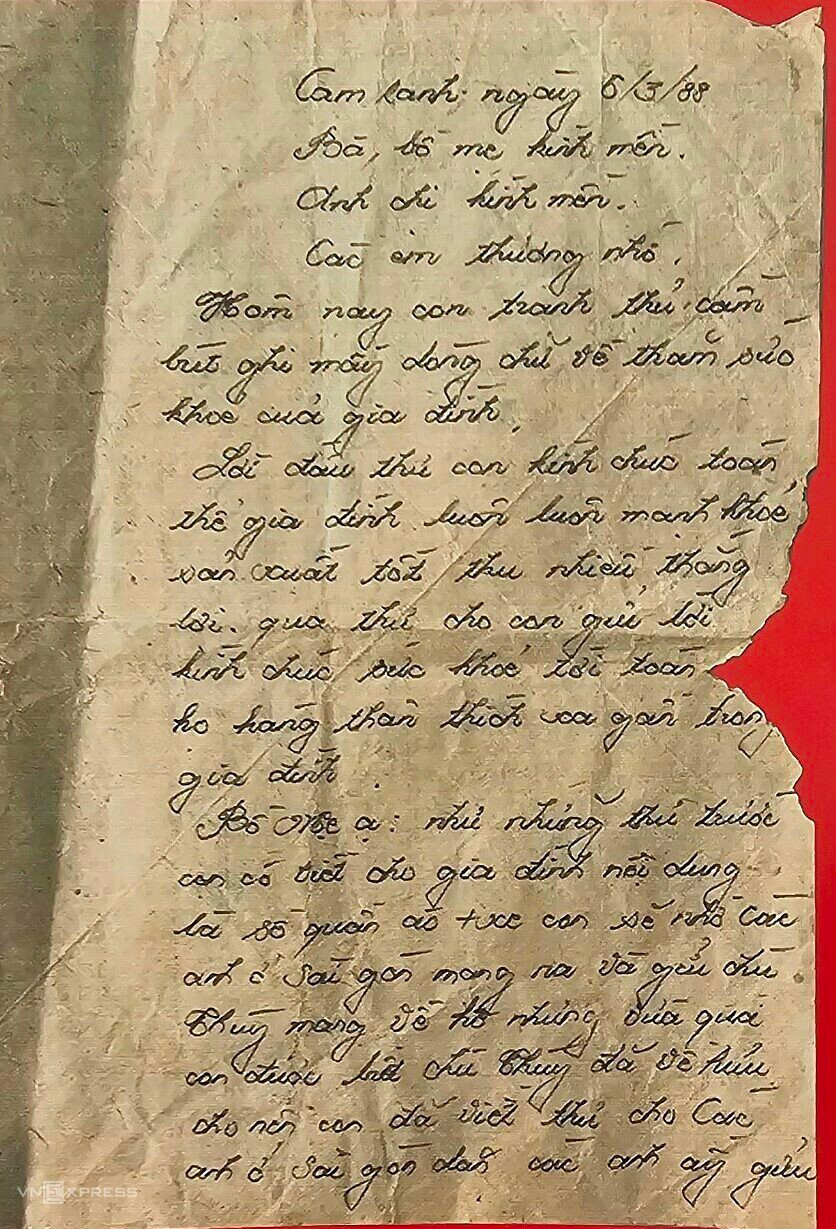 Cam Ranh. ngày 6/3/88
Bà, bố mẹ kính mến.
Anh chị kính mến.
Các em thương nhớ.
Hôm nay con tranh thủ cầm
bút ghi mấy dòng chữ về thăm sức
khoẻ của gia đình.
Lời đầu thư con kính chúc toàn
thể gia đình luôn luôn mạnh khoẻ
sản xuất tốt thu nhiều thắng
lợi. qua thư cho con gửi lời
kính chúc sức khoẻ tới toàn
họ hàng thân thích xa gần trong
gia đình.
Bố Mẹ ạ: như những thư trước
con có viết cho gia đình nội dung
là số quần áo + xe con sẽ nhờ các
anh ở Sài gòn mang ra và gửi chú
Thuỷ mang về hộ nhưng vừa qua
con được biết chú Thuỷ đã về hưu
cho nên con đã viết thư cho Các
anh ở Sài gòn dặn các anh ấy gửi
VNEXPRESS